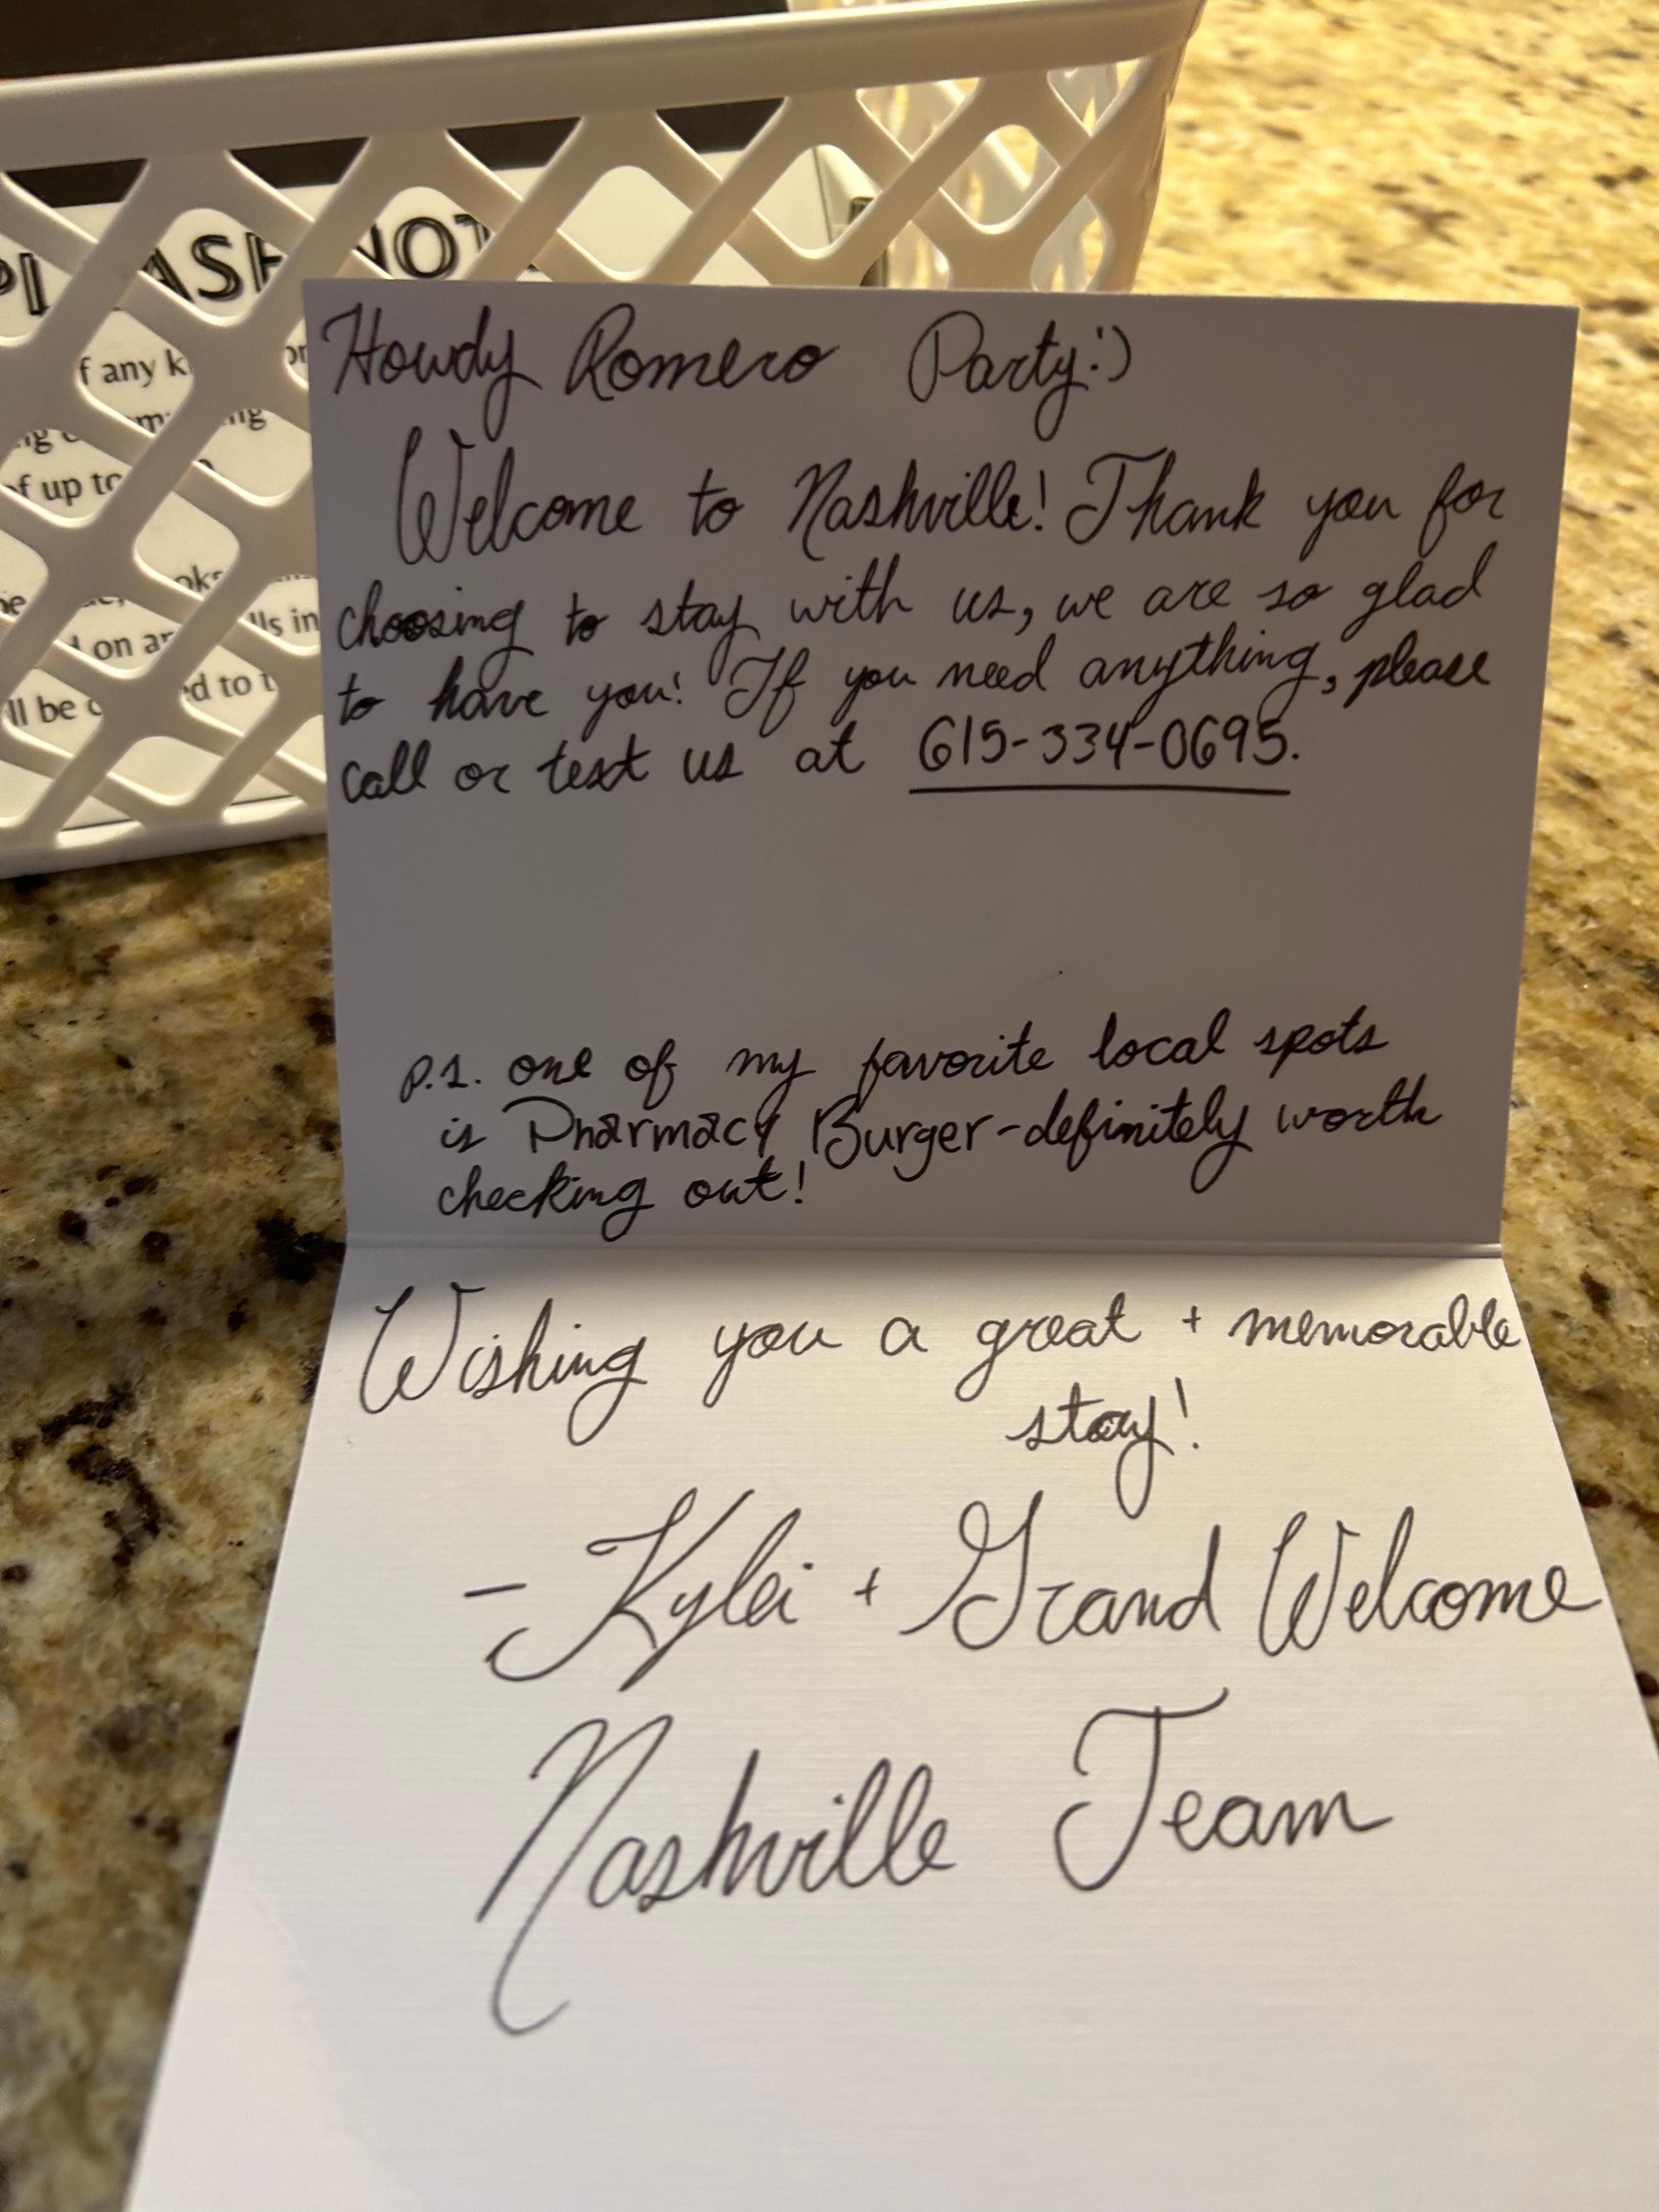 PLEASE NOT
f any k
of up to
on ar
ll be
ed to t
Howdy Romero Party:)
Welcome to Nashville! Thank you for
choosing to stay with us, we are so glad
to have you! If you need anything, please
call or text us at 615-334-0695.
p.s. one of my favorite local spots
is Pharmacy Burger-definitely worth
checking out!
Wishing you a great + memorable
stay!
- Kylei + Grand Welcome
Nashville Team